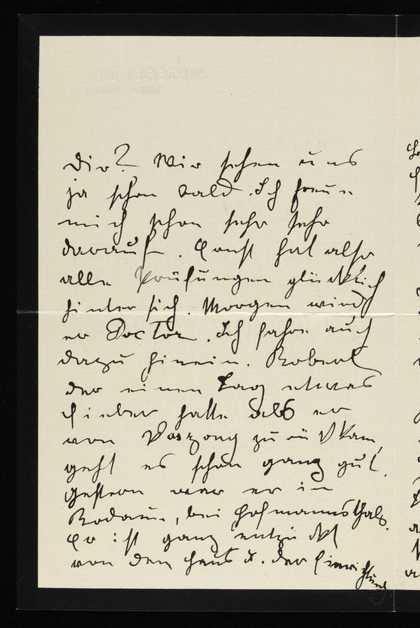 Dir? Wir sehen uns
ja schon bald. Ich freue
mich schon sehr sehr
darauf. Ernst hat also
alle Prüfungen glücklich
hinter sich. Morgen wird
er Doctor. Ich fahre auch
dazu hinein. Robert
der einen Tag etwas
Fieber hatte als er
von zurück kam,
geht es schon ganz gut.
Gestern war er in
Rodaun, bei Hofmannsthals.
Er ist ganz entzückt
von dem Haus u. der Einrichtung